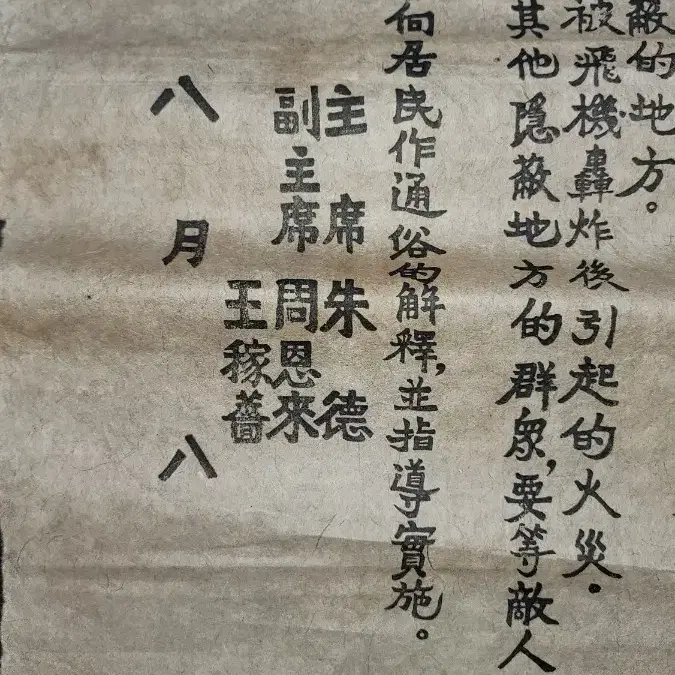 蔽的地方。
被飛機轟炸後引起的火災.
其他隱蔽地方的群衆,要等敵人
向居民作通俗的解釋,並指導實施。
主席朱德
副主席周恩来
王稼蔷
八月八